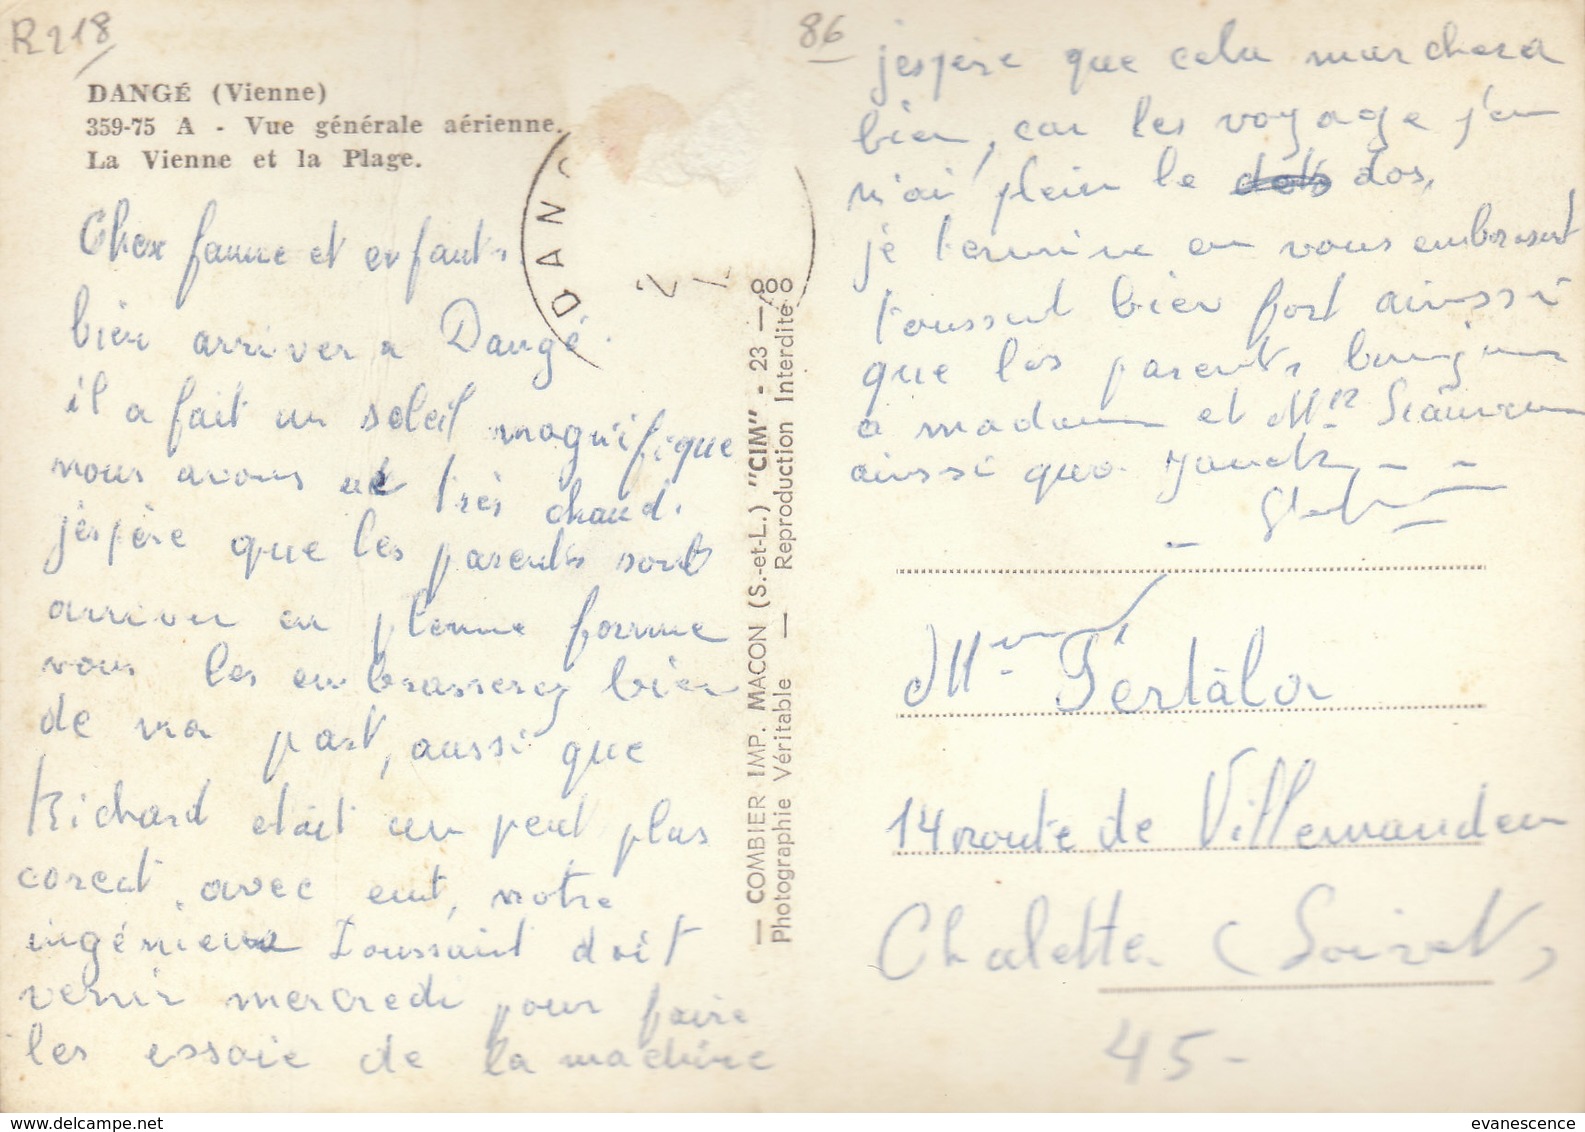 R218
86
DANGÉ (Vienne)
359-75 A - Vue générale aérienne.
La Vienne et la Plage.
DAN
Cher famme et enfants
bien arriver a Dangé.
il a fait un soleil magnifique
nous avons ut très chaud.
j'espère que les parents sont
arriver en plenne forme
vous les embrasserez bien
de ma part, aussi que
Richard etait un peut plus
corect avec eut, notre
ingénieur Toussaint doit
venir mercredi pour faire
les essaie de la machine
jespere que cela marchera
bien, car les voyage j'en
n'ai plein le dos,
je termine en vous embrasent
toussut bien fort ainssi
que les parents bonjour
a madame et Mr
ainssi que
— COMBIER IMP. MACON (S.-et-L.) "CIM" - 23 —
Photographie Véritable — Reproduction Interdite
Mme Pertala
14 route de Villemandeur
Chalette (Loiret)
45-
evanescence